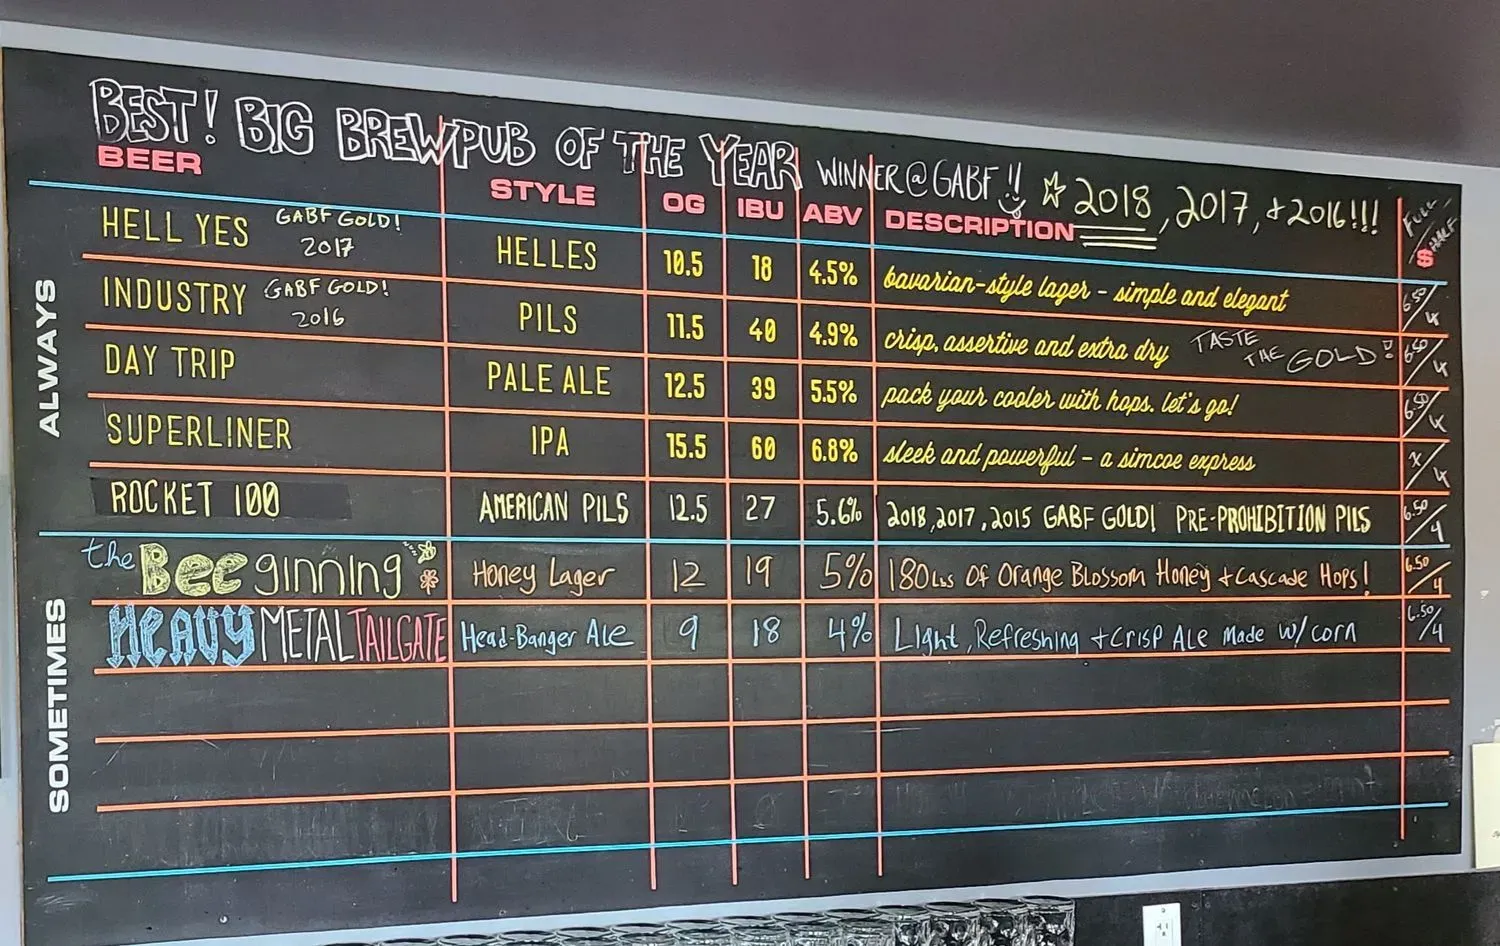 BEST! BIG BREWPUB OF THE YEAR WINNER @ GABF!! ☆ 2018, 2017, + 2016!!!
BEER STYLE OG IBU ABV DESCRIPTION FULL / HALF $
ALWAYS
HELL YES GABF GOLD! 2017 HELLES 10.5 18 4.5% bavarian-style lager - simple and elegant 6.50/4
INDUSTRY GABF GOLD! 2016 PILS 11.5 40 4.9% crisp, assertive and extra dry TASTE THE GOLD! 6.50/4
DAY TRIP PALE ALE 12.5 39 5.5% pack your cooler with hops. let's go! 6.50/4
SUPERLINER IPA 15.5 60 6.8% sleek and powerful - a simcoe express X/4
ROCKET 100 AMERICAN PILS 12.5 27 5.6% 2018, 2017, 2015 GABF GOLD! PRE-PROHIBITION PILS 6.50/4
SOMETIMES
the Beeginning Honey Lager 12 19 5% 180Lbs Of Orange Blossom Honey + Cascade Hops! 6.50/4
HEAVY METAL TAILGATE Head-Banger Ale 9 18 4% Light, Refreshing + Crisp Ale Made w/ corn 6.50/4